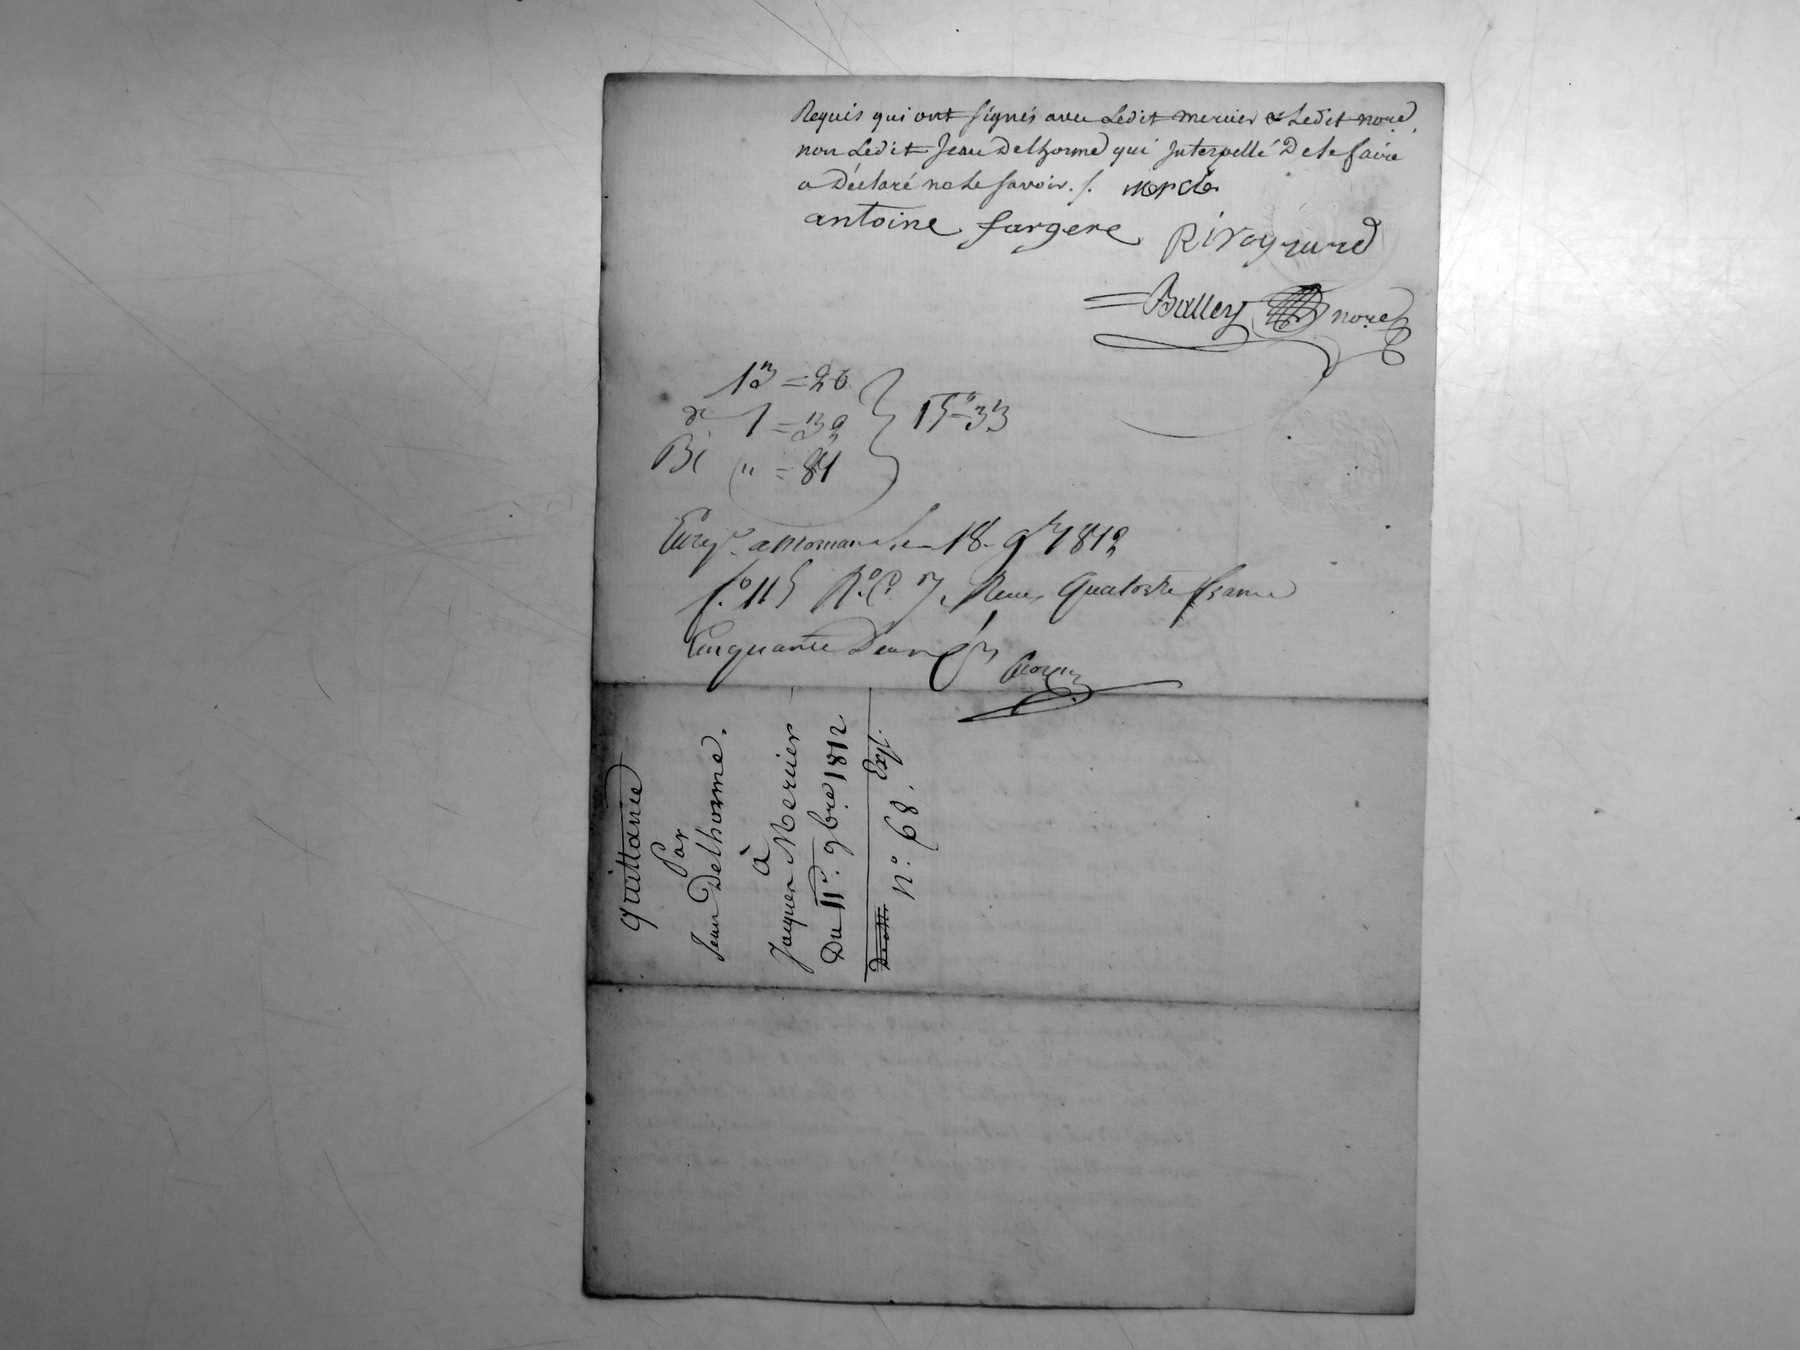 Requis qui ont signés avec Ledit mercier & Ledit nore.
non Ledit Jean Delhorme qui Interpellé De le faire
a Déclaré ne le savoir ./. mercier
antoine fargere Rivoyrard
Balley nore
13 = 26
de 1 = 32
15 = 33
Enregé. a le 18 9bre 1812
fo. 115 Ro. Co. 7. Recu quatorze francs
Cinquante Deux
quittance
Par
Jean Delhorme.
à
Jacques Mercier
Du 11e. 9bre. 1812
no. 68. Exp.